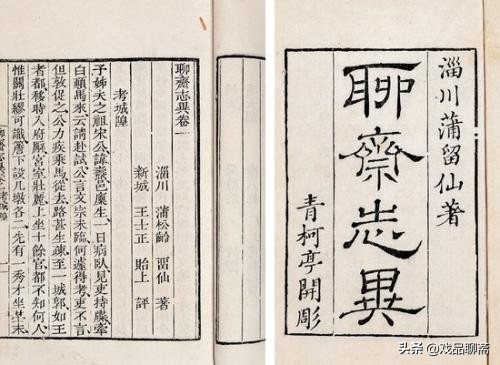 淄川蒲留仙著
聊齋志異
青柯亭開彫
聊齋志異卷一
淄川 蒲松齡 留仙 著
新城 王士正 貽上 評
考城隍
予姊夫之祖宋公諱燾邑廩生一日病臥見吏持牒牽
白顛馬來云請赴試公言文宗未臨何遽得考吏不言
但敦促之公力疾乘馬從去路甚生疎至一城郭如王
者都移時入府廨宮室壯麗上坐十餘官都不知何人
惟關壯繆可識簷下設几墩各二先有一秀才坐其末
头条 @戏品聊斋